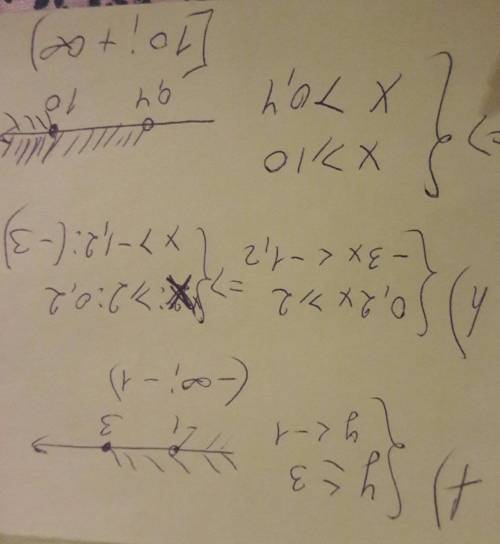 f) { y ≤ 3
y < -1
-1 3
(-∞; -1)
4) { 0,2x ≥ 2 => { x ≥ 2:0,2
-3x < -1,2 x > -1,2:(-3)
=> { x ≥ 10
x > 0,4
0,4 10
[10; +∞)